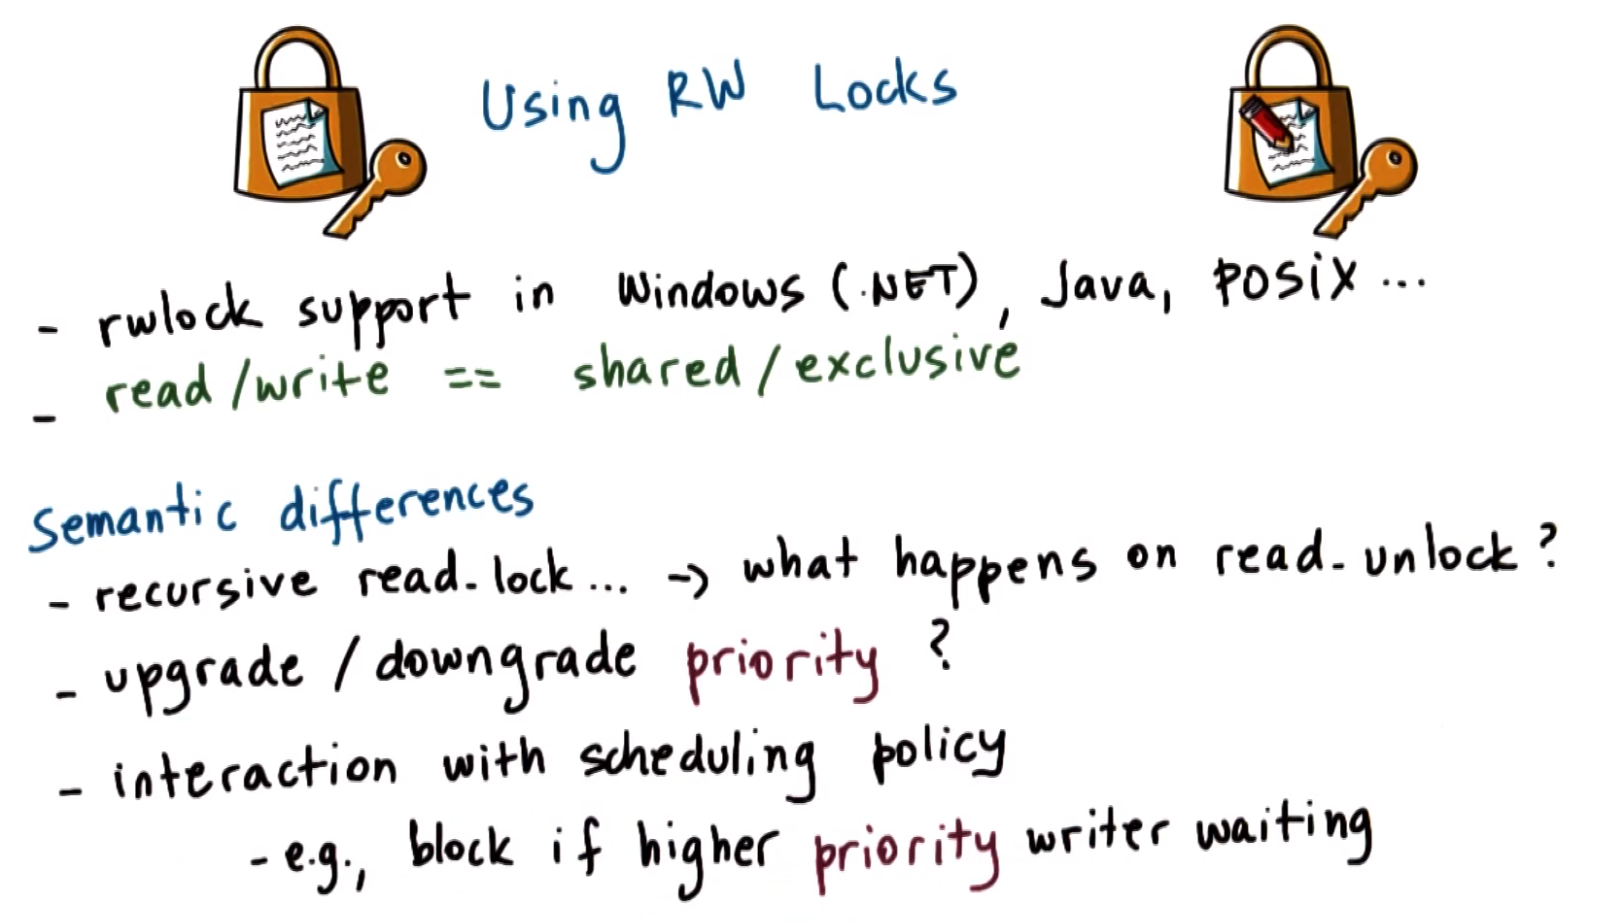 Using RW Locks
- rwlock support in Windows (.NET), Java, POSIX ...
- read/write == shared/exclusive
Semantic differences
- recursive read_lock... -> what happens on read_unlock?
- upgrade / downgrade priority ?
- interaction with scheduling policy
- e.g., block if higher priority writer waiting